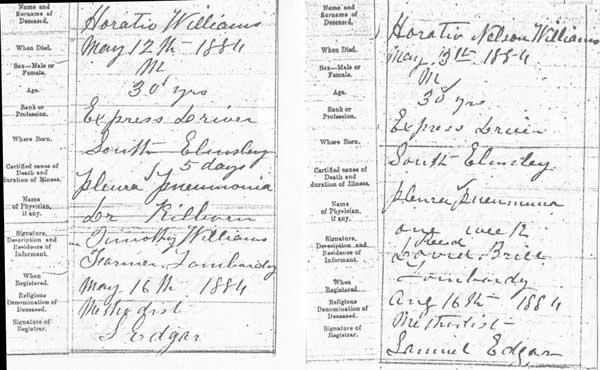 Name and
Surname of
Deceased.
Horatio Williams
When Died.
May 12th 1884
Sex—Male or
Female.
M
Age.
30 yrs
Rank or
Profession.
Express Driver
Where Born.
South Elmsley
Certified cause of
Death and
duration of Illness.
5 days
pleura pneumonia
Name
of Physician,
if any.
Dr Kilborn
Signature,
Description and
Residence of
Informant.
Timothy Williams
Farmer Lombardy
When
Registered.
May 16th 1884
Religious
Denomination of
Deceased.
Methodist
Signature of
Registrar.
S Edgar
Name and
Surname of
Deceased.
Horatio Nelson Williams
When Died.
May 13th 1884
Sex—Male or
Female.
M
Age.
30 yrs
Rank or
Profession.
Express Driver
Where Born.
South Elmsley
Certified cause of
Death and
duration of Illness.
pleura pneumonia
Name
of Physician,
if any.
one week
Signature,
Description and
Residence of
Informant.
Lombardy
When
Registered.
Aug 16th 1884
Religious
Denomination of
Deceased.
Methodist
Signature of
Registrar.
Samuel Edgar